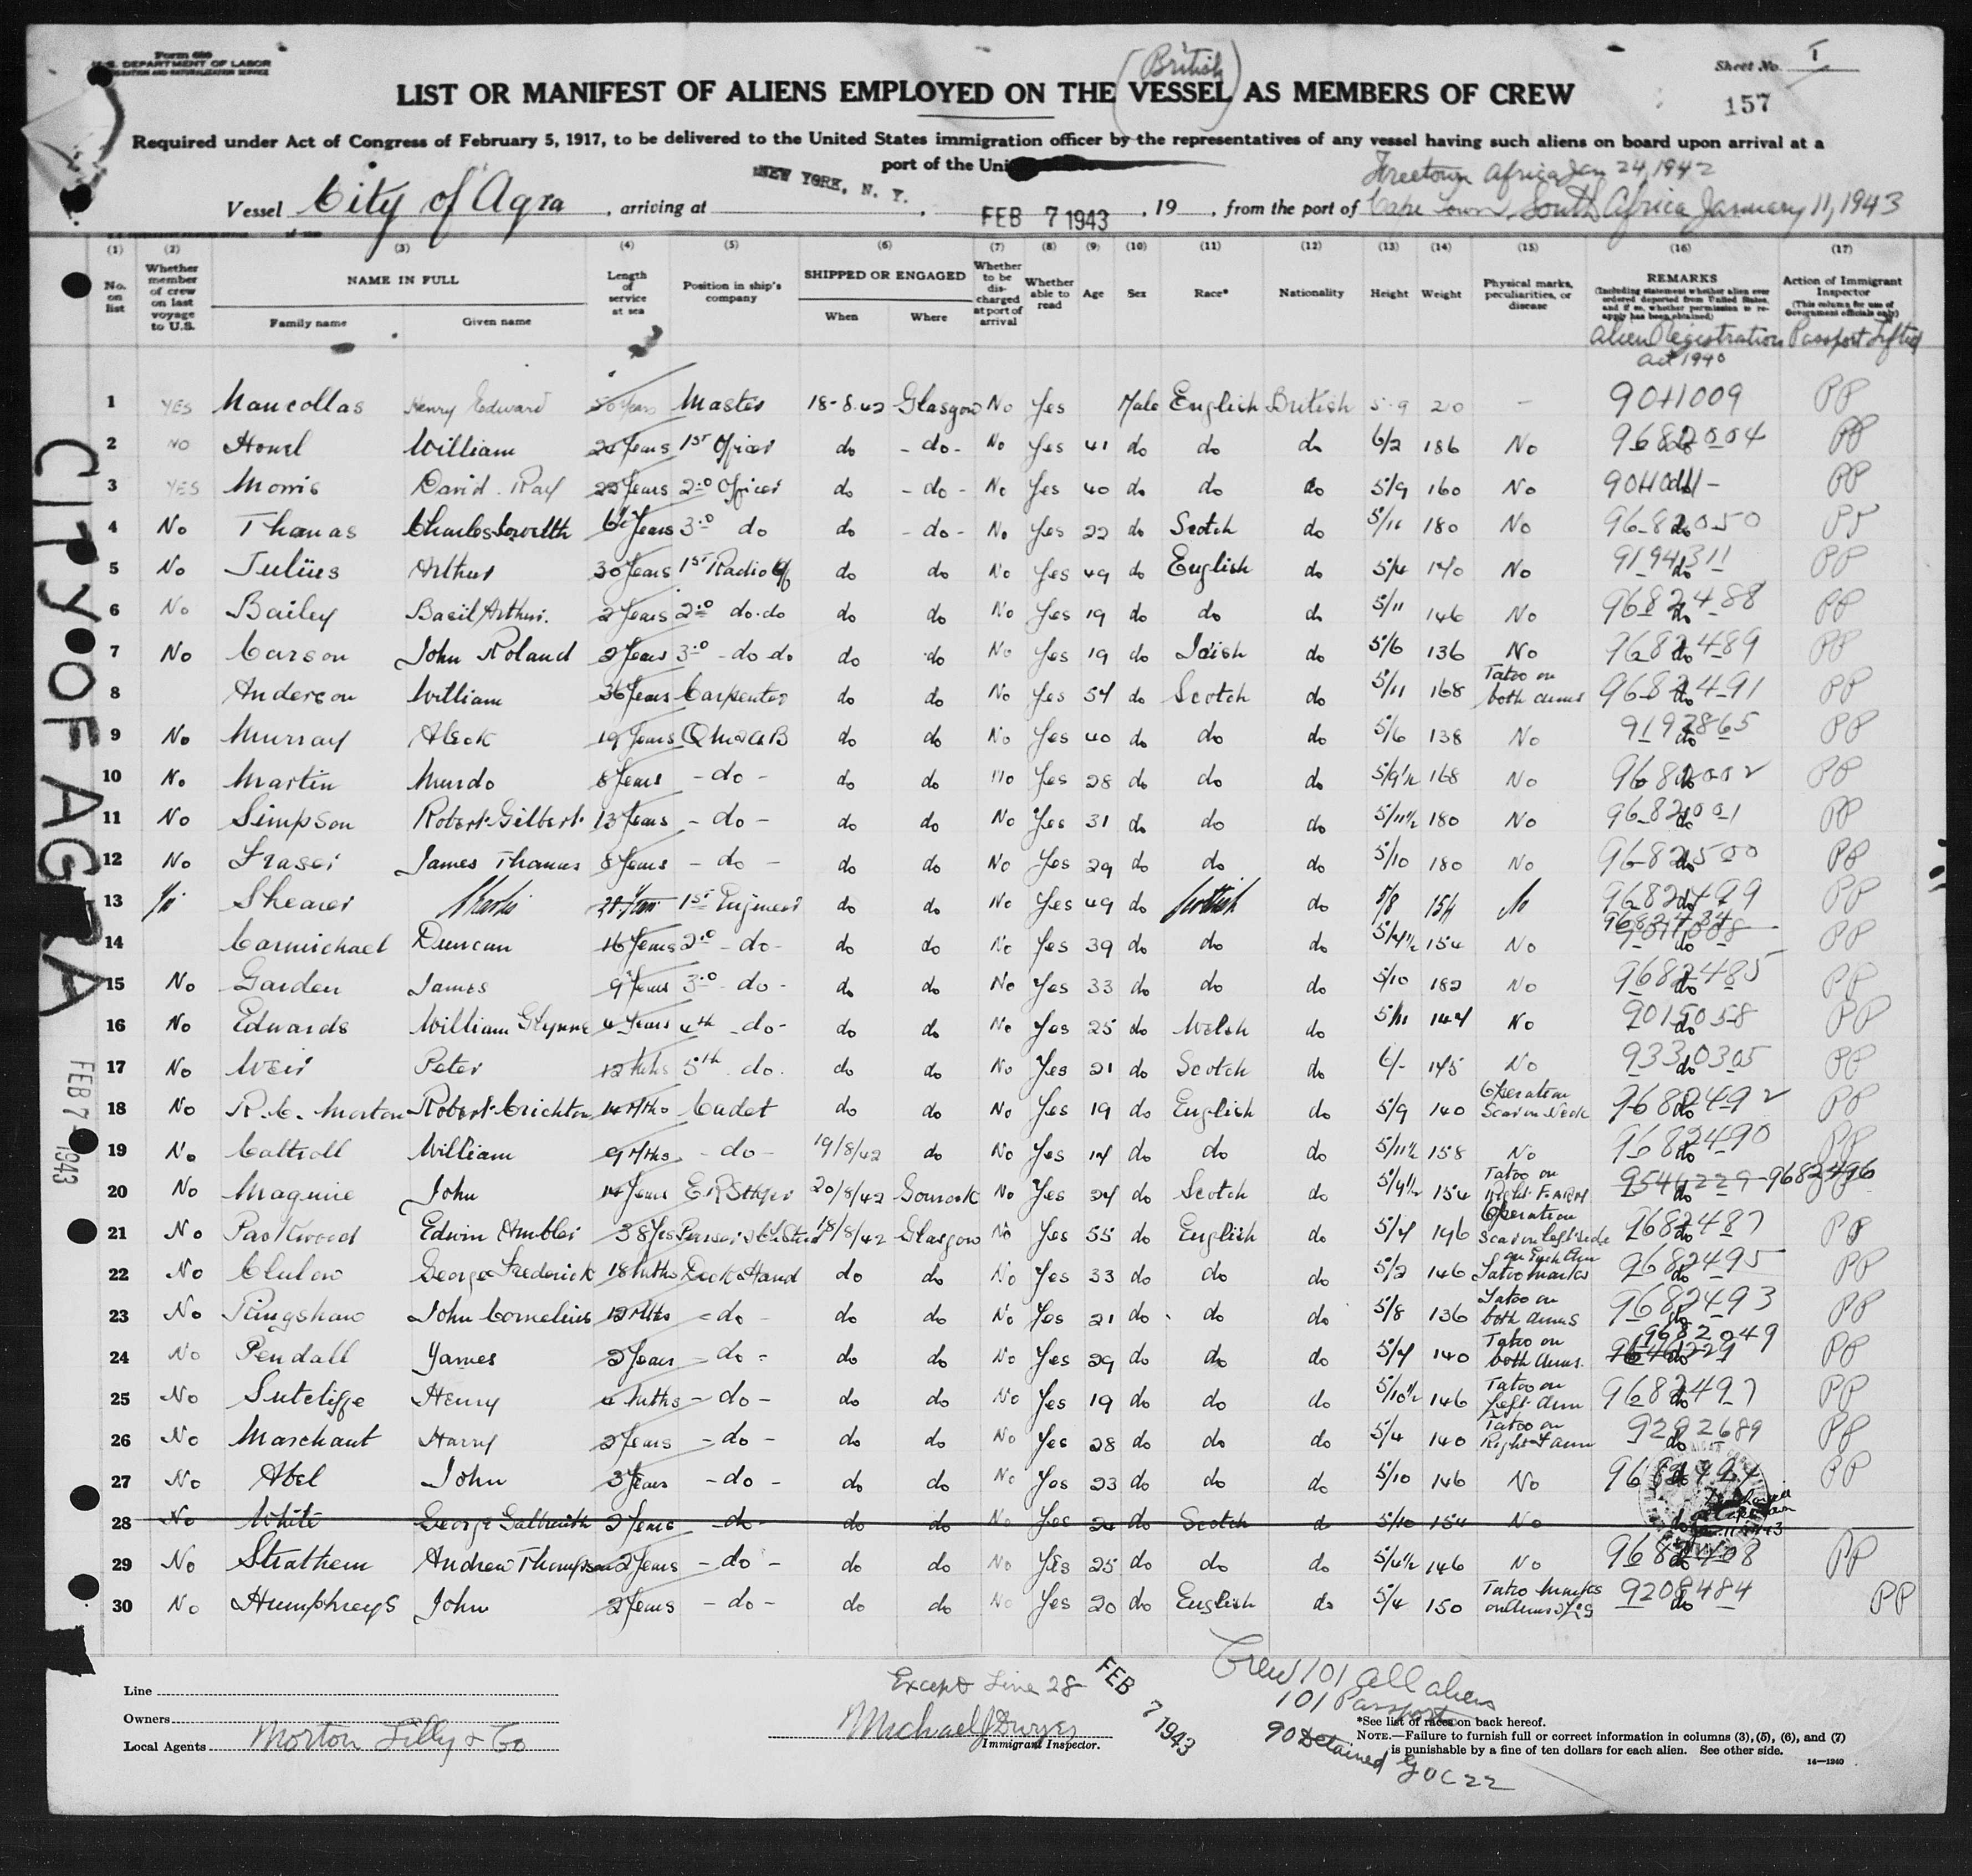 Form 680
U.S. DEPARTMENT OF LABOR
IMMIGRATION AND NATURALIZATION SERVICE
Sheet No. 1
157
(British)
LIST OR MANIFEST OF ALIENS EMPLOYED ON THE VESSEL AS MEMBERS OF CREW
Required under Act of Congress of February 5, 1917, to be delivered to the United States immigration officer by the representatives of any vessel having such aliens on board upon arrival at a
port of the Uni
Freetown Africa Jan 24, 1942
Vessel City of Agra, arriving at NEW YORK, N. Y., FEB 7 1943, 19, from the port of Cape Town, South Africa January 11, 1943
(1) (2) (3) (4) (5) (6) (7) (8) (9) (10) (11) (12) (13) (14) (15) (16) (17)
No. on list
Whether member of crew on last voyage to U.S.
NAME IN FULL
Family name Given name
Length of service at sea
Position in ship's company
SHIPPED OR ENGAGED
When Where
Whether to be discharged at port of arrival
Whether able to read
Age
Sex
Race*
Nationality
Height
Weight
Physical marks, peculiarities, or disease
REMARKS
(Including statement whether alien ever ordered deported from United States, and if so, whether permission to reapply has been obtained)
Alien Registration Act 1940
Action of Immigrant Inspector
(This column for use of Government officials only)
Passport Lifted
1 YES Henry Edward Master 18-8-42 Glasgow No Yes Male English British 5-9 210 - 9011009 PP
2 NO William 1st Officer do -do- No Yes 41 do do do 6/2 186 No 9682004 do PP
3 YES Morris David Ray 22 Years 2nd Officer do -do- No Yes 40 do do do 5/9 160 No do PP
4 No Thomas Charles 6 Years 3rd do do -do- No Yes 22 do Scotch do 5/11 180 No 9682050 do PP
5 No Julius Arthur 30 Years 1st Radio Of do do No Yes 49 do English do 5/4 140 No 9194311 do PP
6 No Bailey Basil Arthur. 2 Years 2nd do.do do do No Yes 19 do do do 5/11 146 No 9682488 do PP
7 No Carson John Roland 2 Years 3rd -do do do do No Yes 19 do Irish do 5/6 136 No 9682489 do PP
8 Anderson William 36 Years Carpenter do do No Yes 54 do Scotch do 5/11 168 Tatoo on both arms 9682491 do PP
9 No Murray Aleck 19 Years do do No Yes 40 do do do 5/6 138 No 9192865 do PP
10 No Martin Murdo 8 Years -do- do do No Yes 28 do do do 5/9½ 168 No 9682002 do PP
11 No Simpson Robert Gilbert 13 Years -do- do do No Yes 31 do do do 5/11½ 180 No 9682001 do PP
12 No Fraser James Thomas 8 Years -do- do do No Yes 29 do do do 5/10 180 No 9682500 do PP
13 Shearer 1st Engineer do do No Yes 49 do Scottish do 5/8 154 No 9682499 do PP
14 Carmichael Duncan 16 Years 2nd -do- do do No Yes 39 do do do 5/4½ 154 No 9682434 do PP
15 No Garden James 9 Years 3rd -do- do do No Yes 33 do do do 5/10 182 No 9682485 do PP
16 No Edwards William Glynne 4 Years 4th -do- do do No Yes 25 do Welsh do 5/11 144 No 9015058 do PP
17 No Weir Peter 12 Mths 5th do. do do No Yes 21 do Scotch do 6/- 145 No 9330305 do PP
18 No R. C. Morton Robert Crichton 14 Mths Cadet do do No Yes 19 do English do 5/9 140 Operation Scar on Neck 9682492 do PP
19 No William 9 Mths -do- 19/8/42 do No Yes 17 do do do 5/11½ 158 No 9682490 do PP
20 No Maguire John 14 Years 20/8/42 Gourock No Yes do Scotch do 5/9½ 154 Tatoo on Right F. Arm 9544229 - 9682496 do PP
21 No Edwin Ambler 38 Yrs 18/8/42 Glasgow No Yes 55 do English do 5/4 196 Operation Scar on left side 9682487 do PP
22 No Clulow George Frederick 18 Mths Deck Hand do do No Yes 33 do do do 5/2 146 on Each Arm Tatoo marks 9682495 do PP
23 No Ringshaw John Cornelius 12 Mths -do- do do No Yes 21 do do do 5/8 136 Tatoo on both arms 9682493 do PP
24 No Pendall James 2 Years -do- do do No Yes 29 do do do 5/4 140 Tatoo on both arms. 9682049 do PP
25 No Sutcliffe Henry 4 Mths -do- do do No Yes 19 do do do 5/10½ 146 Tatoo on Left arm 9682497 do PP
26 No Marchant Harry 2 Years -do- do do No Yes 28 do do do 5/4 140 Tatoo on Right F arm 9292689 do PP
27 No Abel John 3 Years -do- do do No Yes 23 do do do 5/10 146 No 9682494 do PP
28 No White George Galbraith 2 Years -do- do do No Yes 24 do Scotch do 5/10 154 No
29 No Strathern Andrew Thompson 2 Years -do- do do No Yes 25 do do do 5/4½ 146 No 9682408 do PP
30 No Humphreys John 2 Years -do- do do No Yes 20 do English do 5/4 150 Tatoo Marks on Arms 9208484 do PP
CITY OF AGRA
FEB 7 1943
Line
Owners
Local Agents Morton Lilly & Co
Except Line 28
Michael J Dwyer
Immigrant Inspector.
FEB 7 1943
Crew 101 all aliens
101 Passports
90 Detained
*See list of races on back hereof.
NOTE.—Failure to furnish full or correct information in columns (3), (5), (6), and (7)
is punishable by a fine of ten dollars for each alien. See other side.
14—1240